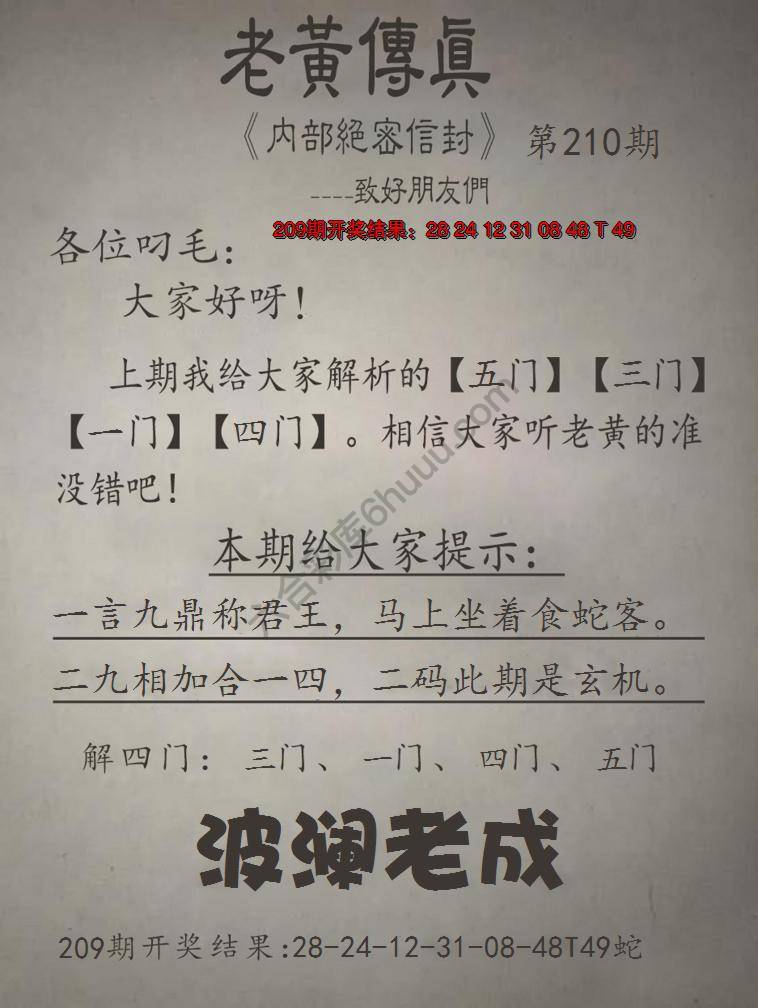 老黃傳眞
《内部絕密信封》 第210期
----致好朋友們
209期开奖结果：28 24 12 31 08 48 T 49
各位叼毛：
大家好呀！
上期我给大家解析的【五门】【三门】
【一门】【四门】。相信大家听老黄的准
没错吧！
六合彩库6huuu.com
本期给大家提示：
一言九鼎称君王，马上坐着食蛇客。
二九相加合一四，二码此期是玄机。
解四门：三门、一门、四门、五门
波澜老成
209期开奖结果:28-24-12-31-08-48T49蛇